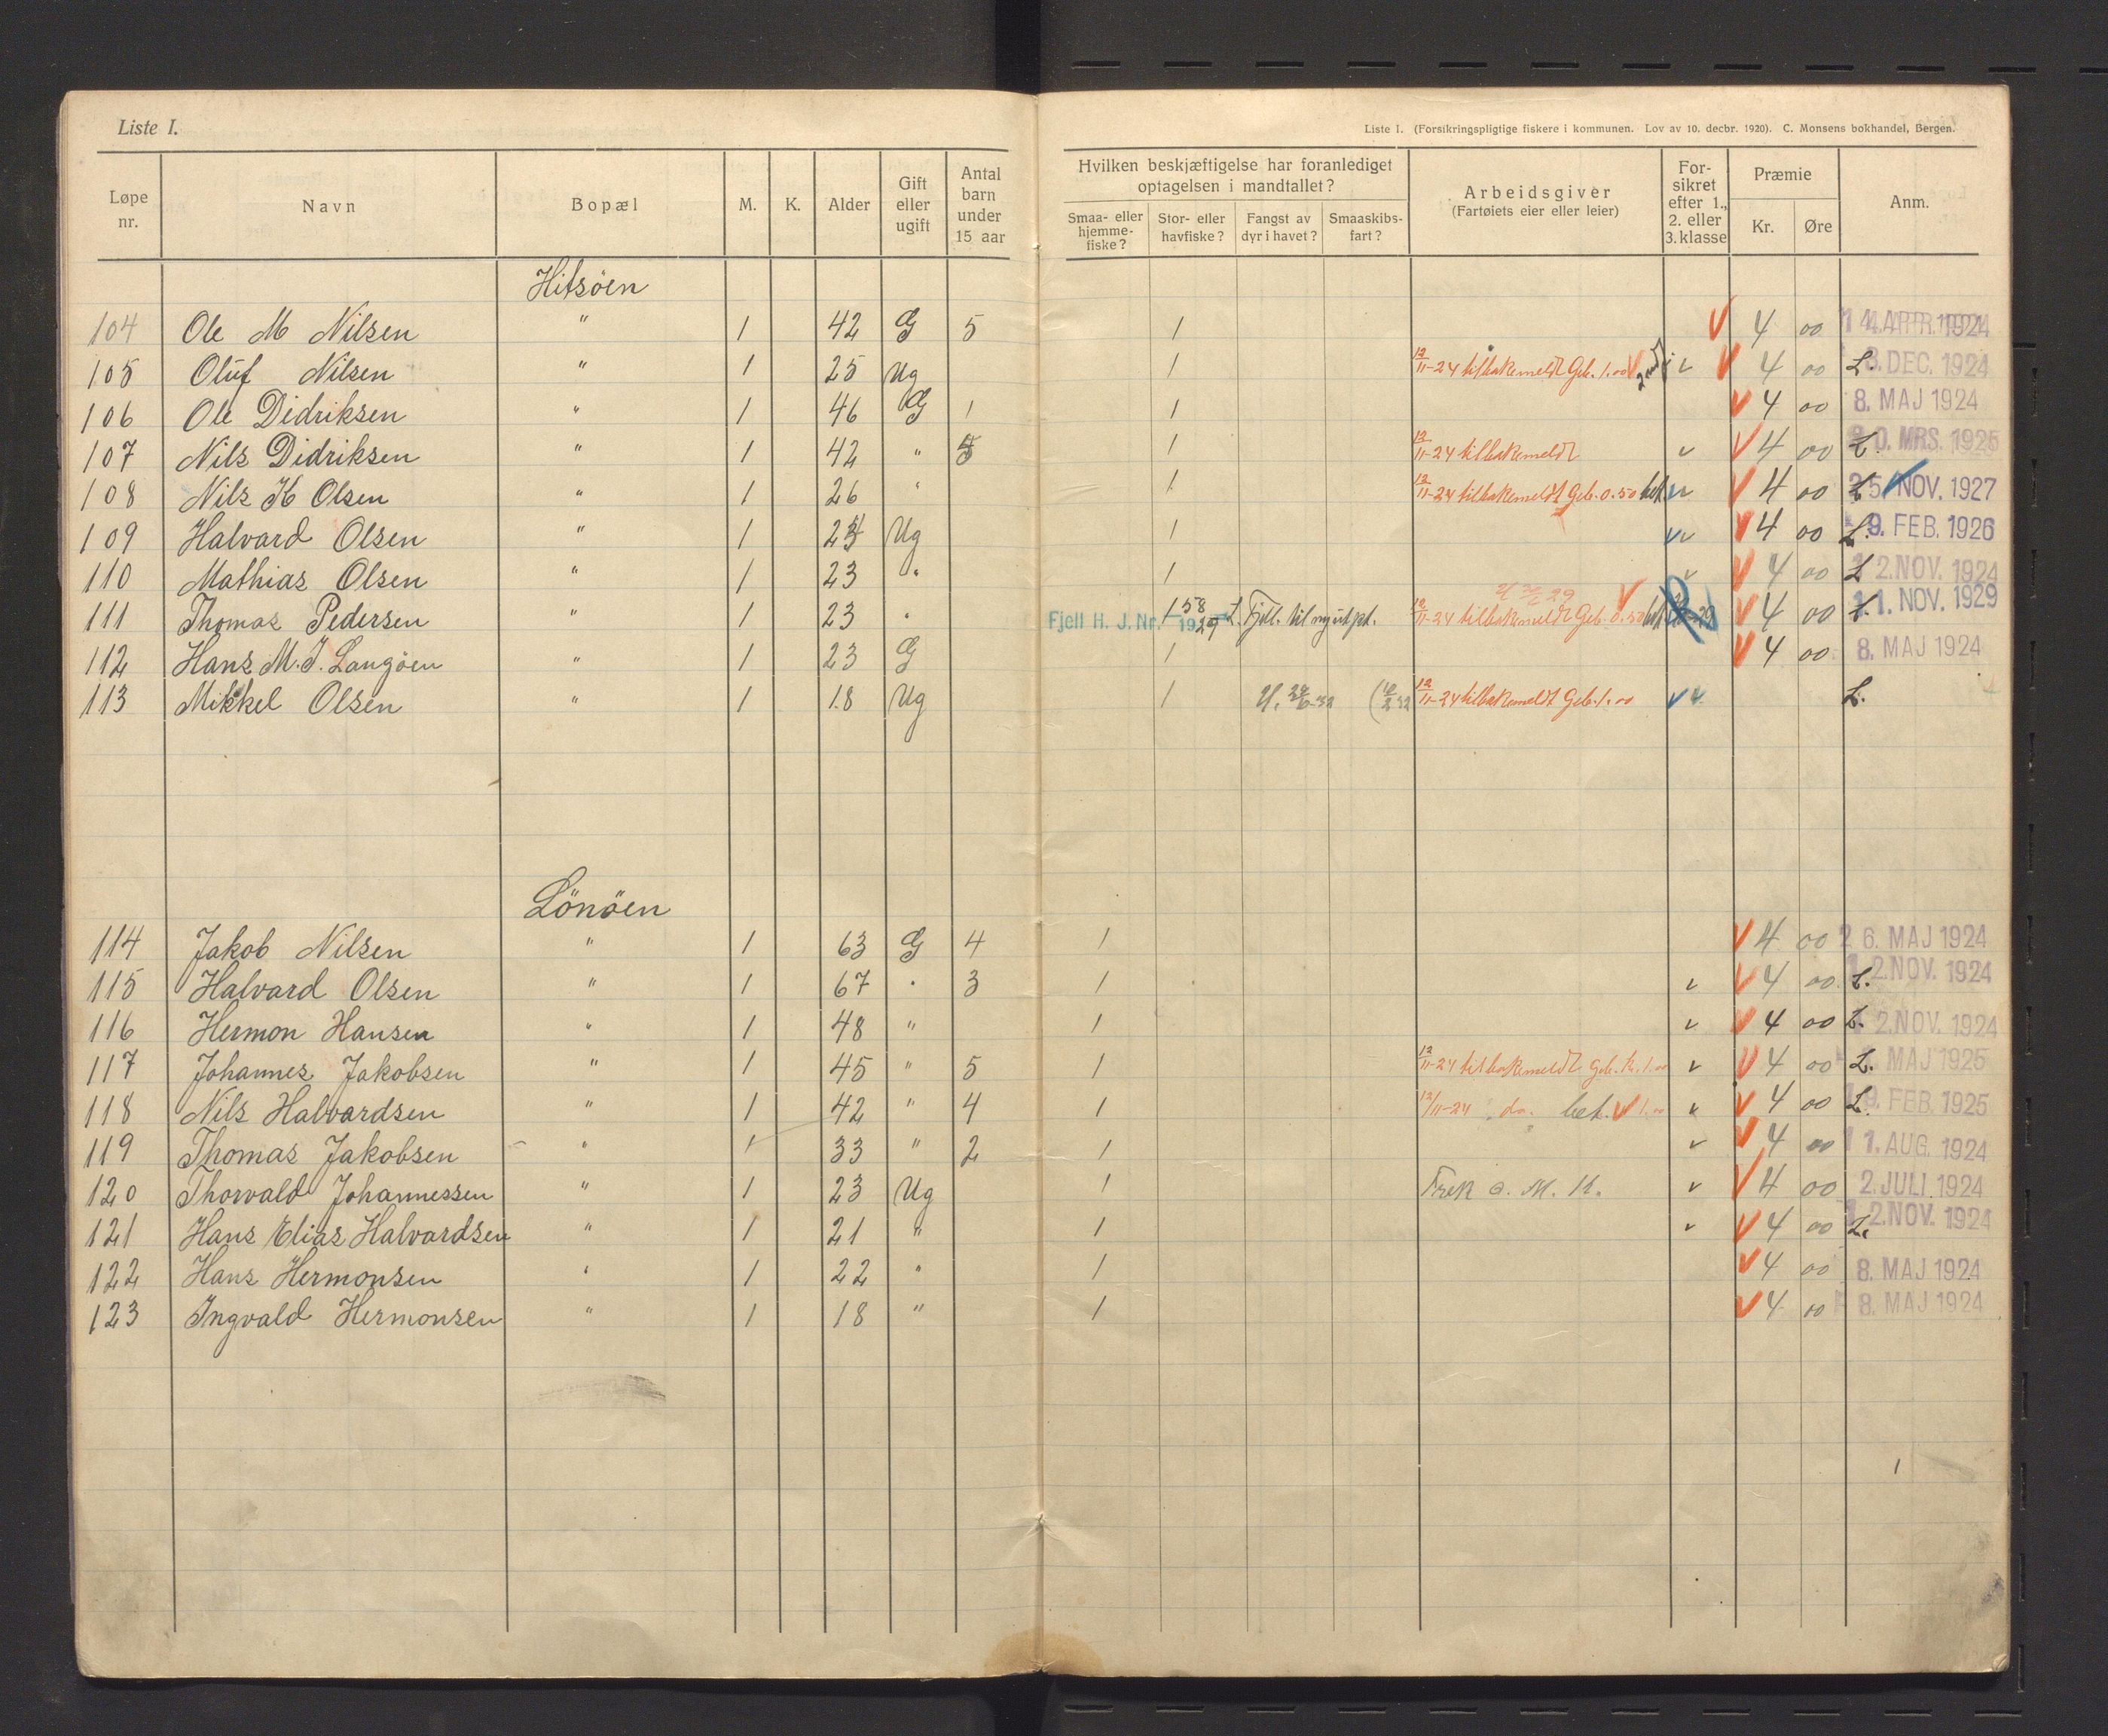 Liste I.
Liste I. (Forsikringspligtige fiskere i kommunen. Lov av 10. decbr. 1920). C. Monsens bokhandel, Bergen.
Løpe nr. Navn Bopæl M. K. Alder Gift eller ugift Antal barn under 15 aar Hvilken beskjæftigelse har foranlediget optagelsen i mandtallet? Smaa- eller hjemme-fiske? Stor- eller havfiske? Fangst av dyr i havet? Smaaskibs-fart? Arbeidsgiver (Fartøiets eier eller leier) For-sikret efter 1., 2. eller 3. klasse Præmie Kr. Øre Anm.
Hitsöen
104 Ole M Nilsen " 1 42 G 5 1 V 4 00 14. APR. 1924
105 Oluf Nilsen " 1 25 Ug 1 12/11-24 tilbakemeldt Geb. 1.00 V v V 4 00 L. 3. DEC. 1924
106 Ole Didriksen " 1 46 G 1 1 V 4 00 8. MAJ 1924
107 Nils Didriksen " 1 42 " 1 12/11-24 tilbakemeldt v V 4 00 L. 20. MRS. 1925
108 Nils K Olsen " 1 26 " 1 12/11-24 tilbakemeldt Geb. 0.50 bet. v V 4 00 L 25. NOV. 1927
109 Halvard Olsen " 1 Ug 1 v v V 4 00 L. 9. FEB. 1926
110 Mathias Olsen " 1 23 " 1 v V 4 00 L 12. NOV. 1924
111 Thomas Pedersen " 1 23 " Fjell H. J. Nr. 158 1929 L. Fjell. til ny utpt. 12/11-24 tilbakemeldt Geb. 0.50 bet. V V 4 00 L. 11. NOV. 1929
112 Hans M. J. Langöen " 1 23 G 1 V 4 00 8. MAJ 1924
113 Mikkel Olsen " 1 18 Ug 1 12/11-24 tilbakemeldt Geb. 1.00 v v L.
Lönöen
114 Jakob Nilsen " 1 63 G 4 1 V 4 00 26. MAJ 1924
115 Halvard Olsen " 1 67 " 3 1 v V 4 00 L. 12. NOV. 1924
116 Hermon Hansen " 1 48 " 1 v V 4 00 L. 12. NOV. 1924
117 Johannes Jakobsen " 1 45 " 5 1 12/11-24 tilbakemeldt Geb. kr. 1.00 v V 4 00 L. MAJ 1925
118 Nils Halvardsen " 1 42 " 4 1 12/11-24 do. bet. V 1.00 v V 4 00 L. 19. FEB. 1925
119 Thomas Jakobsen " 1 33 " 2 1 v V 4 00 11. AUG. 1924
120 Thorvald Johannessen " 1 23 Ug 1 v V 4 00 2. JULI 1924
121 Hans Elias Halvardsen " 1 21 " 1 v V 4 00 L. 12. NOV. 1924
122 Hans Hermonsen " 1 22 " 1 V 4 00 8. MAJ 1924
123 Ingvald Hermonsen " 1 18 " 1 V 4 00 8. MAJ 1924